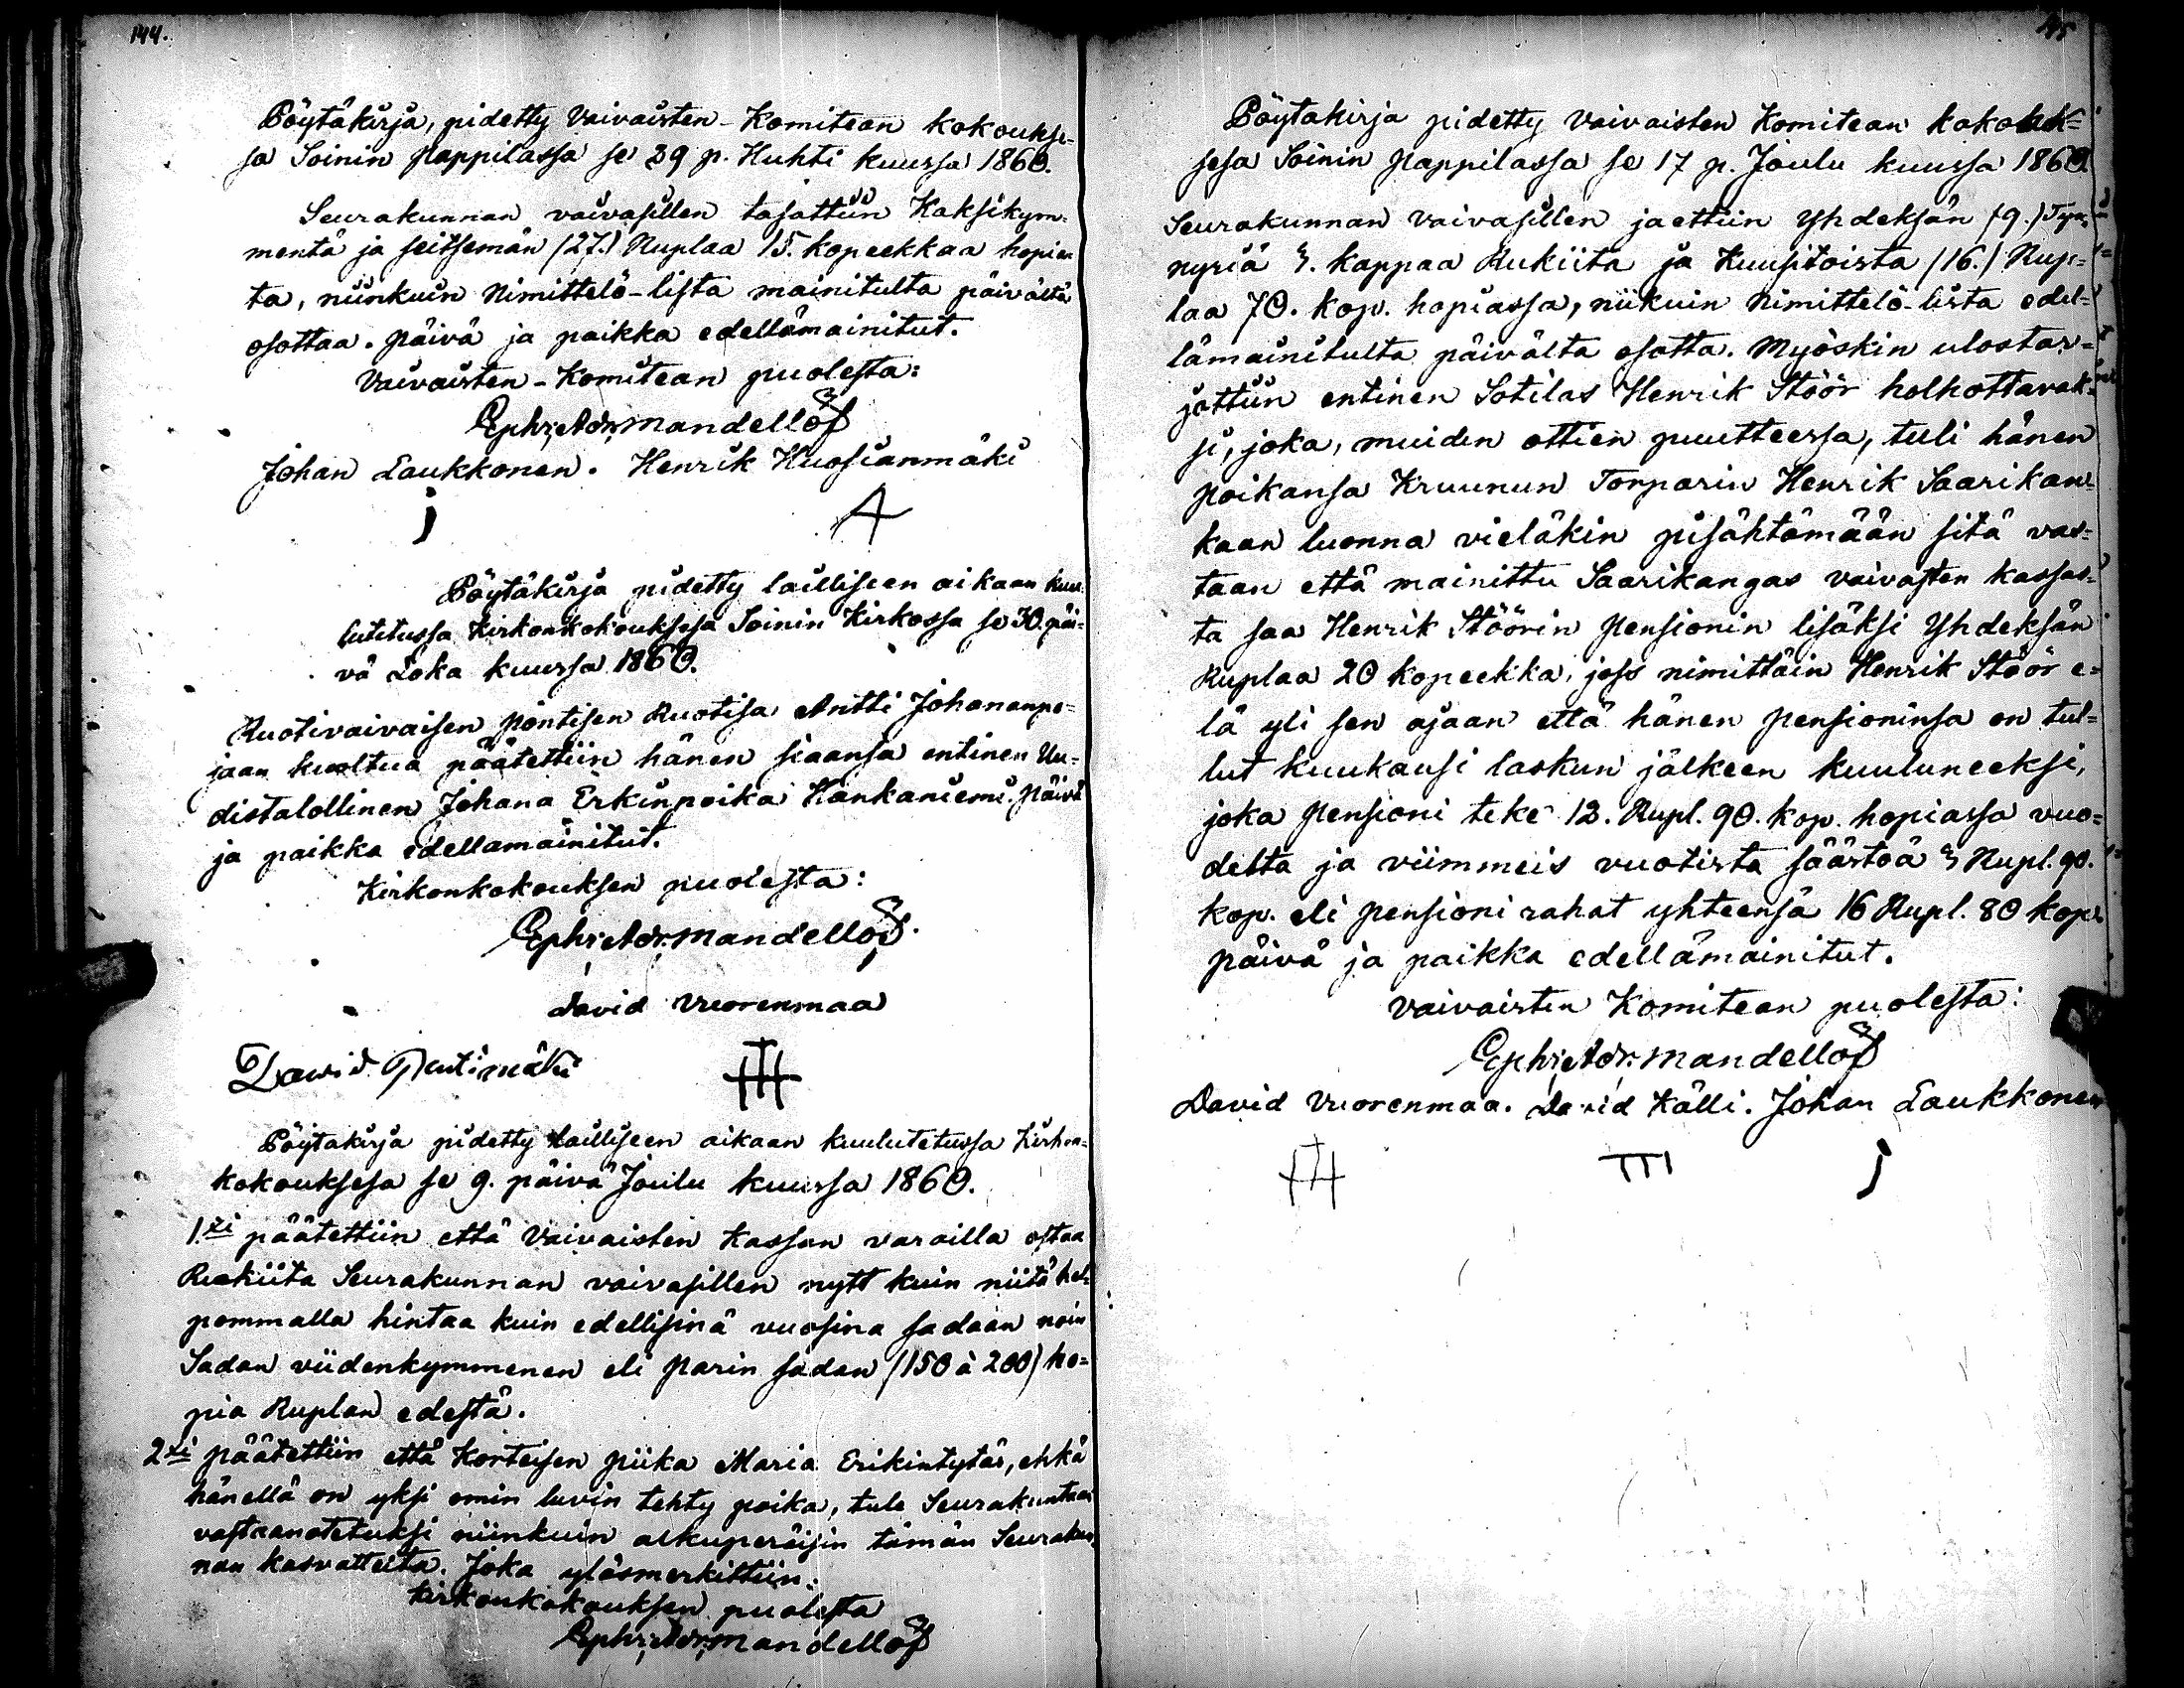 144.
Pöytäkirja, pidetty Vaivaisten-Komitean kokoukse-
sa Soinin pappilassa se 29 p. Huhti kuussa 1860.
Seurakunnan vaivasillen tasattiin Kaksikym-
mentä ja seitsemän (27.) Ruplaa 15. kopeekkaa hopias-
ta, niinkuin Nimittelö-lista mainitulta päivältä
osottaa. päivä ja paikka edellämainitut.
Vaivaisten-Komitean puolesta:
Ephr. Adr. Mandellöf
Johan Laukkonen. Henrik Huosianmäki
Pöytäkirja pidetty lailliseen aikaan kuu-
lutetussa Kirkonkokouksesa Soinin Kirkossa se 30. päi-
vä Loka kuussa 1860.
Ruotivaivaisen pöntisen Ruotisa Antti Johananpo-
jaan kuoltua päätettiin hänen siaansa entinen Uu-
distalollinen Johana Erkinpoika Kankaniemi. päivä
ja paikka edellamainitut.
Kirkonkokouksen puolesta:
Ephr. Adr. Mandellöf.
David Vuorenmaa
Dawid Autimäki
Pöytakirja pidetty lailliseen aikaan kuulutetussa Kirkon-
kokouksesa se 9. päivä Joulu kuussa 1860.
1.xi päätettiin että Vaivaisten Kassan varailla ostaa
Rukiita Seurakunnan vaivasillen nytt kuin niitä hel-
pommalla hintaa kuin edellisinä vuosina sadaan noin
Sadan viidenkymmenen eli parin sadan (150 à 200) ho-
pia Ruplan edestä.
2xi päätettiin että Korteisen piika Maria Erikintytär, ehkä
hänellä on yksi omin luvin tehty poika, tule Seurakuntaan
vastaanotetuksi niinkuin alkuperäisin tämän Seurakun-
nan kasvatteita. Joka ylösmerkittiin.
Kirkonkokouksen puolesta
Ephr. Adr. Mandellöf
145
Pöytakirja pidetty Vaivaisten Komitean kokouk-
sesa Soinin pappilassa se 17 p. Joulu kuussa 1860.
Seurakunnan vaivasillen jaettiin Yhdeksän (9.) Tyn-
nyriä 3. kappaa Rukiita ja Kuusitoista (16.) Rup-
laa 70. kop. hopiassa, niikuin Nimittelö-lista edel-
lämainitulta päivälta osotta. Myöskin ulostar-
jottiin entinen Sotilas Henrik Stöör holhottavak-
si, joka, muiden ottien puutteessa, tuli hänen
poikansa Kruunun Torparin Henrik Saarikan-
kaan luonna vieläkin pisähtämään sitä vas-
taan että mainittu Saarikangas vaivasten kassas-
ta saa Henrik Stöörin Pensionin lisäksi Yhdeksän
Ruplaa 20 kopeekka, joss nimittäin Henrik Stöör e-
lä yli sen ajaan että hänen pensioninsa on tul-
lut kuukausi laskun jälkeen kuuluneeksi,
joka Pensioni teke 12. Rupl. 90. kop. hopiassa vuo-
delta ja viimmeis vuotista säästöä 3 Rupl. 90.
kop. eli pensioni rahat yhteensä 16 Rupl. 80 kop.
päivä ja paikka edellämainitut.
Vaivaisten Komitean puolesta:
Ephr. Adr. Mandellöf
David Vuorenmaa. David Källi. Johan Laukkonen